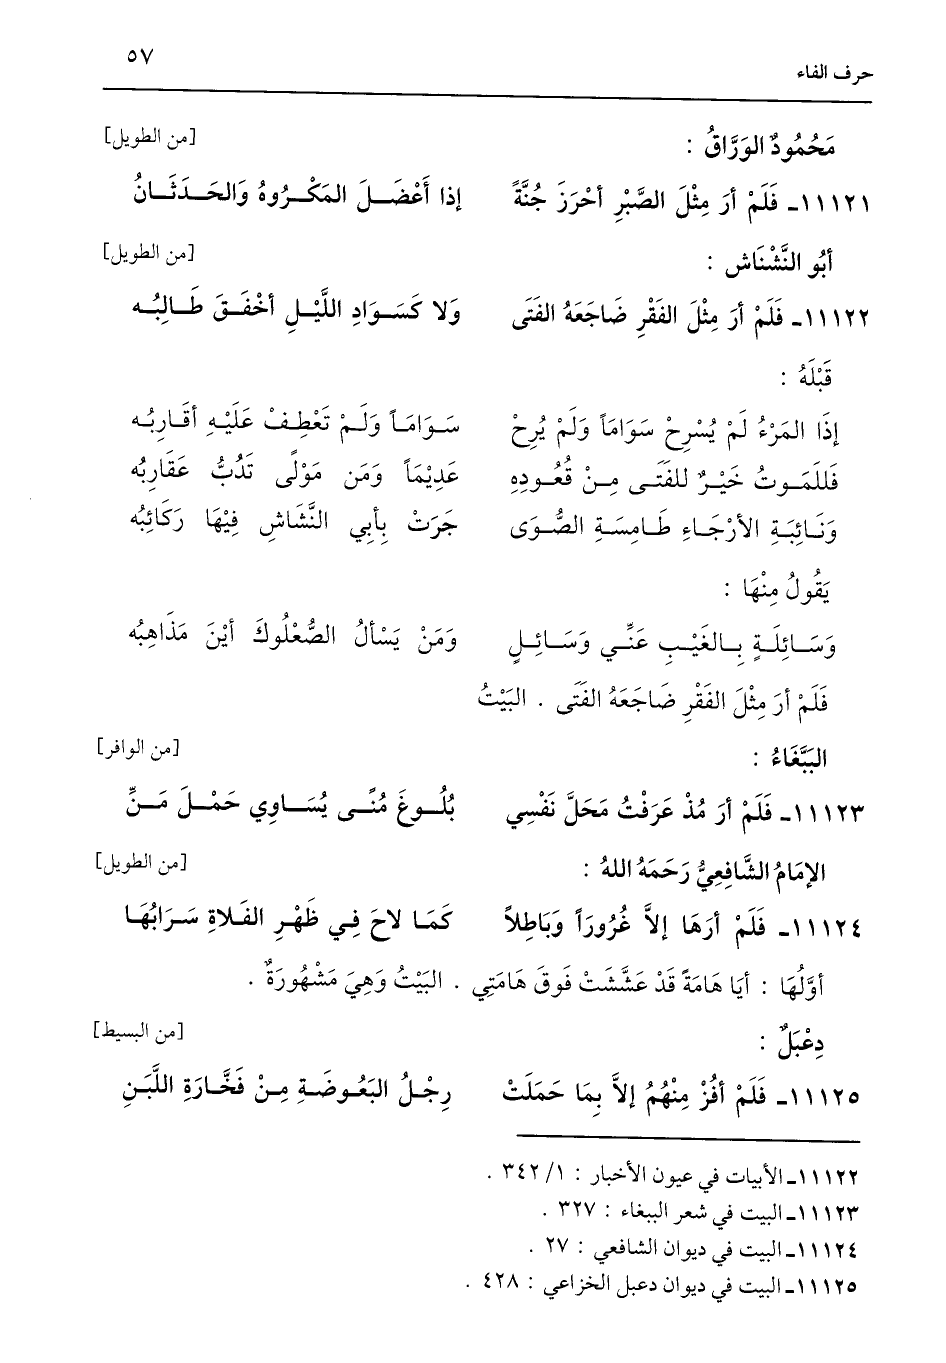 حرف الفاء ٥٧
مَحْمُودٌ الوَرَّاقُ : [من الطويل]
١١١٢١ـ فَلَمْ أرَ مِثْلَ الصَّبْرِ أحْرَزَ جُنَّةً إذا أَعْضَلَ المَكْرُوهُ وَالحَدَثَانُ
أبُو النَّشْنَاش : [من الطويل]
١١١٢٢ـ فَلَمْ أرَ مِثْلَ الفَقْرِ ضَاجَعَهُ الفَتَى وَلا كَسَوَادِ اللَّيْلِ أخْفَقَ طَالِبُه
قَبْلَهُ :
إذَا المَرْءُ لَمْ يُسْرِحْ سَوَامَاً وَلَمْ يُرِحْ سَوَامَاً وَلَمْ تَعْطِفْ عَلَيْهِ أقَارِبُه
فَللمَوتُ خَيْرٌ للفَتَى مِنْ قُعُودِهِ عَدِيْمَاً وَمَن مَوْلًى تَدُبُّ عَقَارِبُه
وَنَائِبَةِ الأرْجَاءِ طَامِسَةِ الصُّوَى جَرَتْ بِأبِي النَّشَاشِ فِيْهَا رَكَائِبُه
يَقُولُ مِنْهَا :
وَسَائِلَةٍ بِالغَيْبِ عَنِّي وَسَائِلٍ وَمَنْ يَسْألُ الصُّعْلُوكَ أيْنَ مَذَاهِبُه
فَلَمْ أرَ مِثْلَ الفَقْرِ ضَاجَعَهُ الفَتَى . البَيْتُ
البَبَّغَاءُ : [من الوافر]
١١١٢٣ـ فَلَمْ أرَ مُذْ عَرَفْتُ مَحَلَّ نَفْسِي بُلُوغَ مُنًى يُسَاوِي حَمْلَ مَنِّ
الإمَامُ الشَّافِعِيُّ رَحَمَهُ اللهُ : [من الطويل]
١١١٢٤ـ فَلَمْ أرَهَا إلاَّ غُرُورَاً وَبَاطِلاً كَمَا لاحَ فِي ظَهْرِ الفَلاةِ سَرَابُهَا
أوَّلُهَا : أيَا هَامَةً قَدْ عَشَّشَتْ فَوقَ هَامَتِي . البَيْتُ وَهِيَ مَشْهُورَةٌ .
دِعْبَلٌ : [من البسيط]
١١١٢٥ـ فَلَمْ أفُزْ مِنْهُمُ إلاَّ بِمَا حَمَلَتْ رِجْلُ البَعُوضَةِ مِنْ فَخَّارَةِ اللَّبَنِ
١١١٢٢ـ الأبيات في عيون الأخبار : ١/ ٣٤٢ .
١١١٢٣ـ البيت في شعر الببغاء : ٣٢٧ .
١١١٢٤ـ البيت في ديوان الشافعي : ٢٧ .
١١١٢٥ـ البيت في ديوان دعبل الخزاعي : ٤٢٨ .